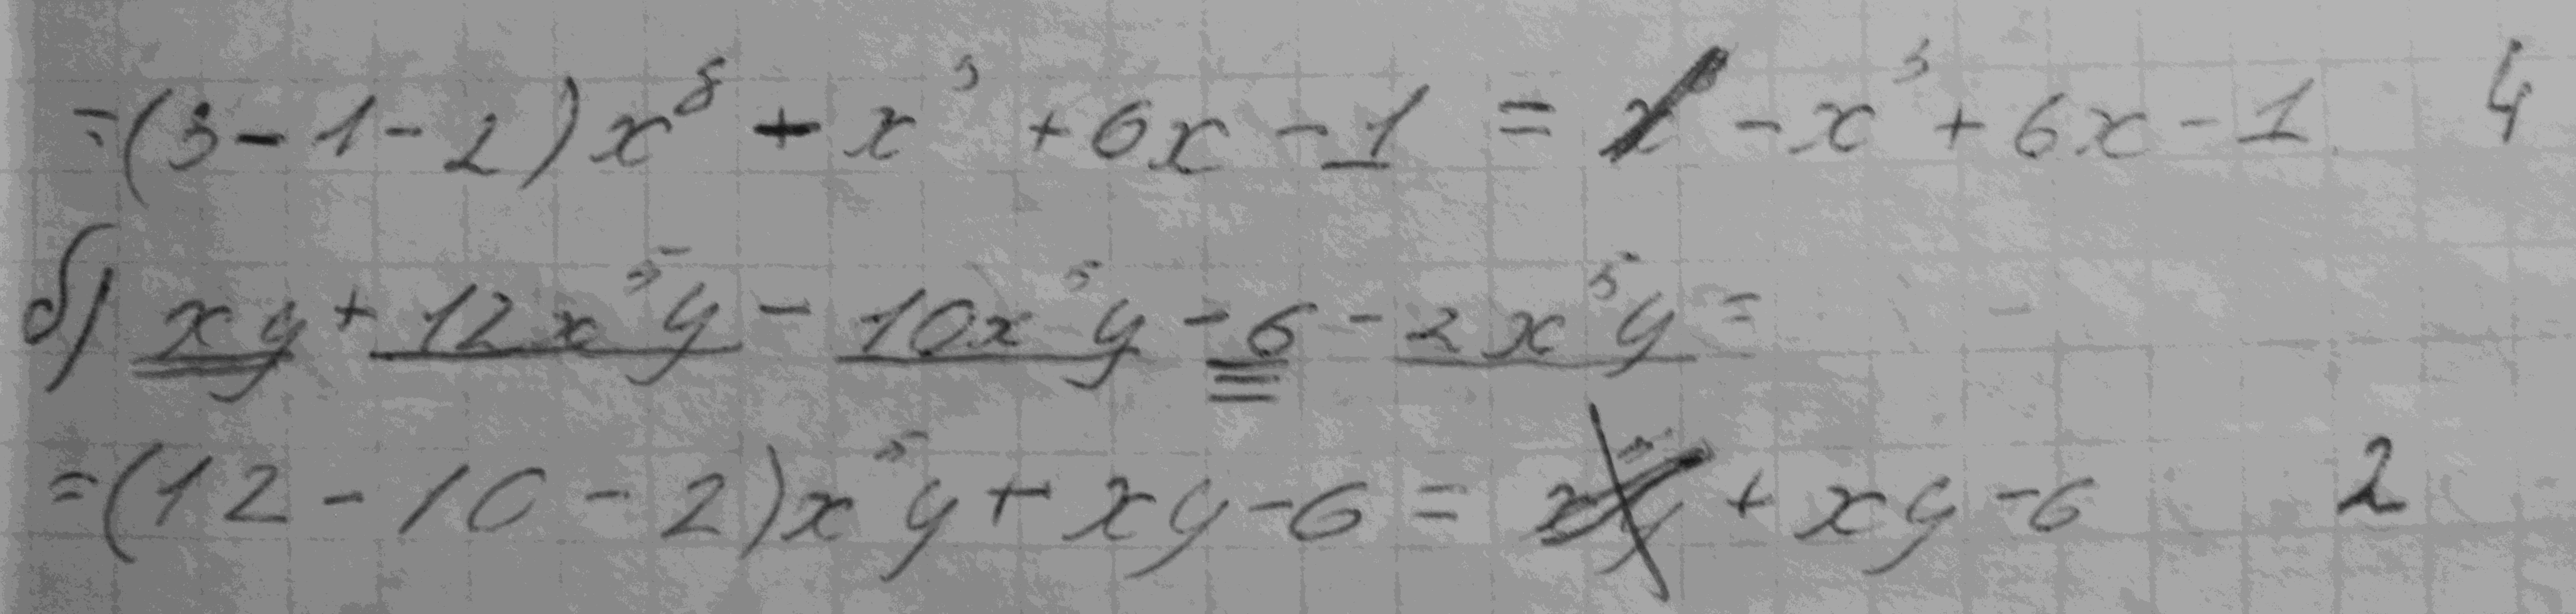 =(3-1-2)x⁸ + x³ + 6x - 1 = - x³ + 6x - 1 4
б) xy + 12x⁵y - 10x⁵y - 6 - 2x⁵y =
=(12 - 10 - 2)x⁵y + xy - 6 = + xy - 6 2